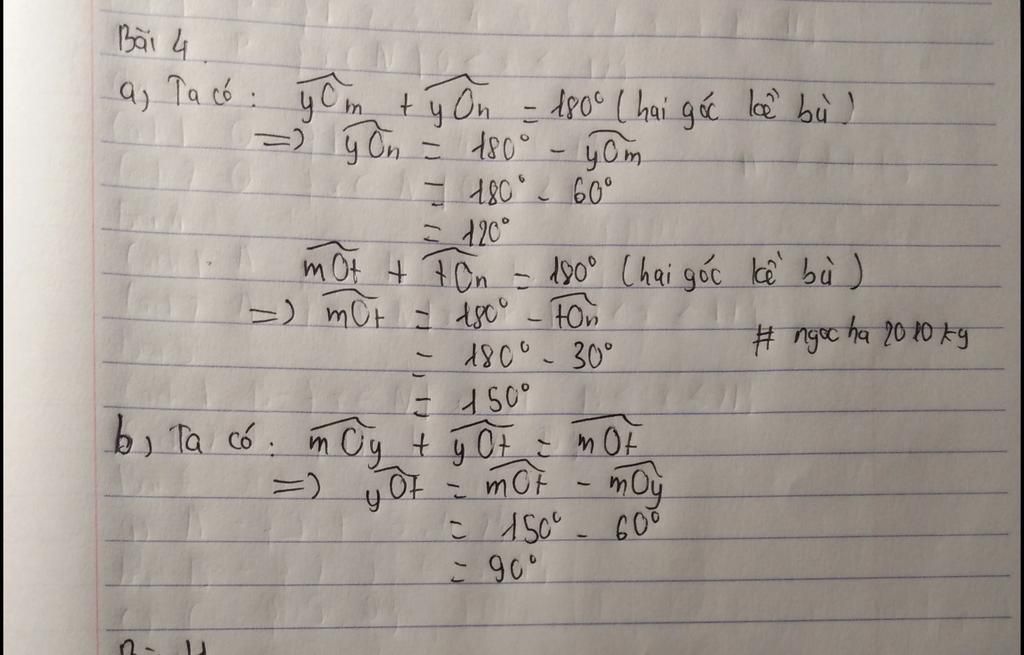 Bài 4
a, Ta có: yOm + yOn = 180° (hai góc kề bù)
=> yOn = 180° - yOm
= 180° - 60°
= 120°
mOt + tOn = 180° (hai góc kề bù)
=> mOt = 180° - tOn
# ngocha2010kg
= 180° - 30°
= 150°
b, Ta có: mOy + yOt = mOt
=> yOt = mOt - mOy
= 150° - 60°
= 90°